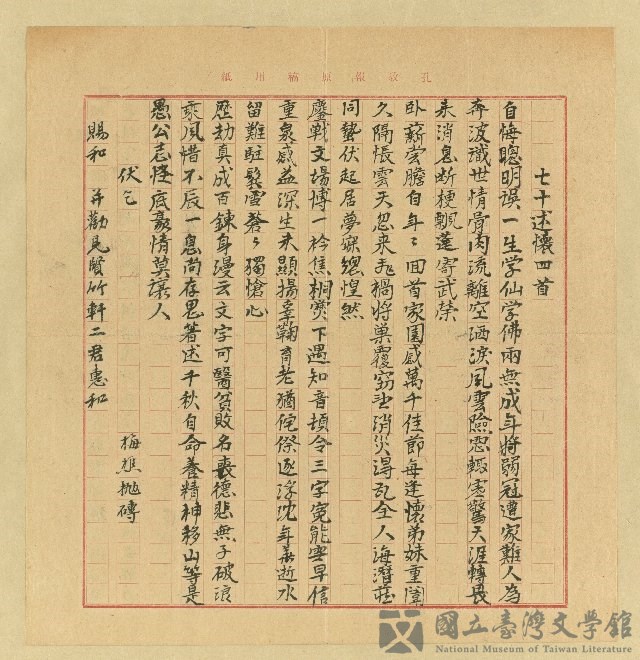 孔教報原稿用紙
七十述懷四首
自悔聰明誤一生学仙学佛兩無成年將弱冠遭家難人為
奔波識世情骨肉流離空洒淚風雲險惡輒虛驚天涯轉
来消息断梗飄蓬寄武榮
卧薪嘗膽自年〻回首家園感萬千佳節每逢懷弟妹重闈
久隔悵雲天忽来飛禍將巢覆窃幸消災得瓦全人海潛
同蟄伏起居夢寐總惶然
鏖戰文場博一衿焦桐爨下遇知音頓令三字寃能雪早信
重泉感益深生未顯揚辜鞠育老猶侘傺逐浮沈年華逝水
留難駐鬓雪蒼〻獨愴心
歷劫真成百鍊身漫云文字可醫貧敗名喪德悲無子破浪
乘風惜不辰一息尚存思著述千秋自命養精神移山等是
愚公志怪底豪情莫讓人
伏乞 梅樵拋磚
賜和 并勸見賢竹軒二君惠和
國立臺灣文學館
National Museum of Taiwan Literature